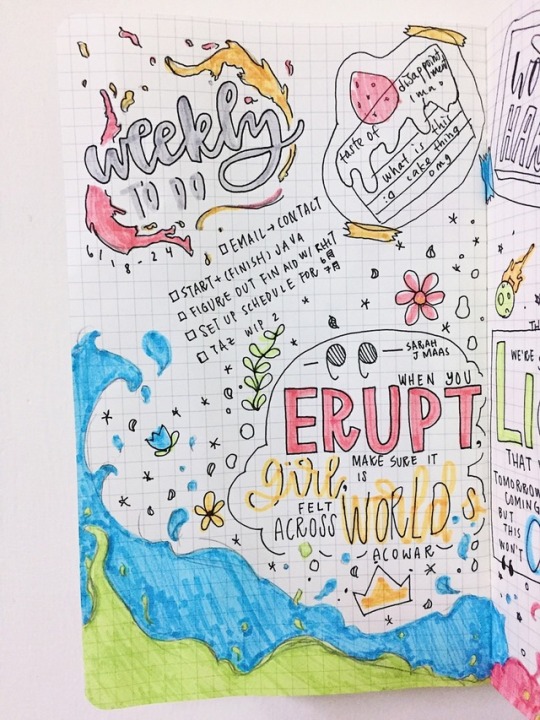 weekly
TO DO
6/18-24
disappoint
ment
lmao
taste of
what is this
cake thing
omg
EMAIL → CONTACT
START + (FINISH) JAVA
FIGURE OUT FIN AID W/
SET UP SCHEDULE FOR 6月
7月
TAZ WIP 2
SARAH
J MAAS
WHEN YOU
ERUPT,
girl, MAKE SURE IT
IS
FELT
ACROSS WORLDS
ACOWAR
WE'RE
THAT
TOMORROW
COMING
BUT
THIS
WON'T